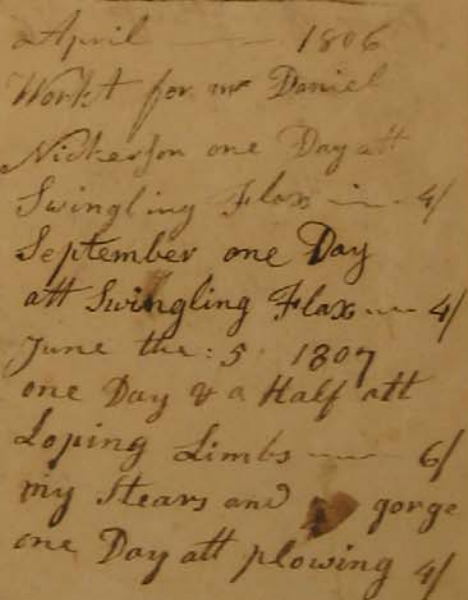 April — 1806
Workt for mr Daniel
Nickerson one Day att
Swingling Flax — 4/
September one Day
att Swingling Flax — 4/
June the: 5 1807
one Day & a Half att
Loping Limbs — 6/
my Stears and gorge
one Day att plowing 4/